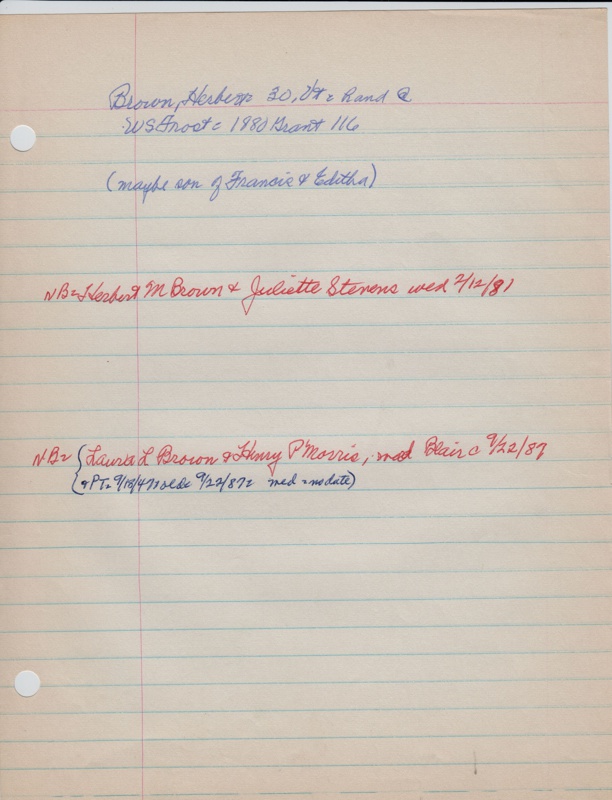 Brown, Herbert 30, Vt = Rand @
WS Frost = 1880 Grant 116
(maybe son of Francis & Editha)
NB = Herbert M Brown & Juliette Stevens wed 2/12/81
NB = { Laura L Brown & Henry P Morris, Blair @ 9/22/87
(& PT = 9/22/87 = med = no date)